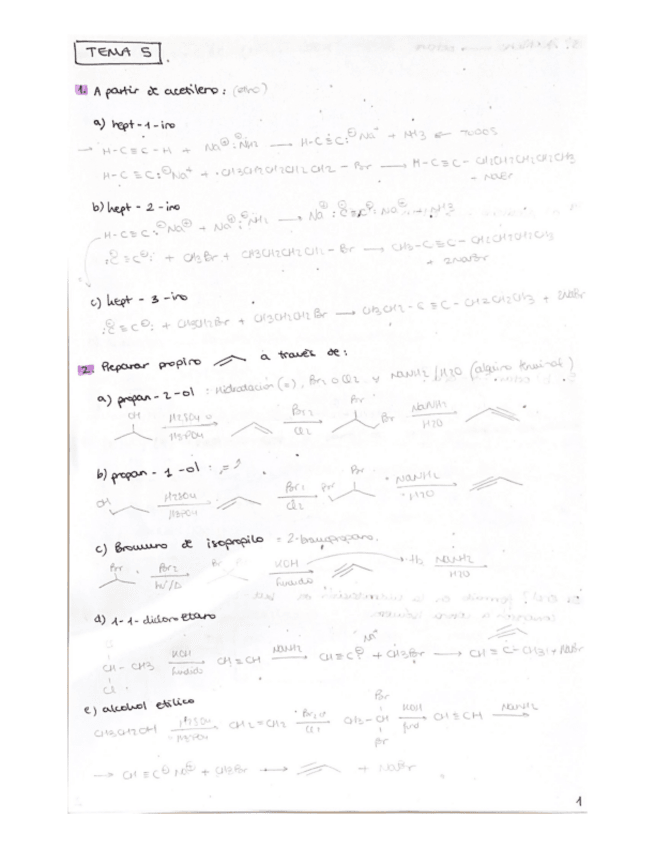 TEMA 5.
1. A partir de acetileno: (etino)
a) hept-1-ino
→ H-C≡C-H + Na⊕:⊖NH2 → H-C≡C:⊖Na⊕ + NH3
H-C≡C:⊖Na⊕ + CH3CH2CH2CH2CH2-Br → H-C≡C-CH2CH2CH2CH2CH3
- NaBr
b) hept-2-ino
H-C≡C:⊖Na⊕ + Na⊕:⊖NH2 → Na⊕:⊖C≡C:⊖Na⊕ + NH3
:⊖C≡C⊖: + CH3Br + CH3CH2CH2CH2-Br → CH3-C≡C-CH2CH2CH2CH3
+ 2NaBr
c) hept-3-ino
:⊖C≡C⊖: + CH3CH2Br + CH3CH2CH2Br → CH3CH2-C≡C-CH2CH2CH3 + 2NaBr
2. Preparar propino a través de:
a) propan-2-ol: Hidratación, Br2 o Cl2 y NaNH2/H2O (alquino terminal)
OH Br
H2SO4 o Br2 Br NaNH2
H3PO4 Cl2 H2O
b) propan-1-ol:
OH H2SO4 Br2 Br Br NaNH2
H3PO4 Cl2 H2O
c) Bromuro de isopropilo = 2-bromopropano.
Br Br2 Br KOH NaNH2
hν/Δ fundido H2O
d) 1-1-dicloroetano
Cl
CH-CH3 KOH fundido CH≡CH NaNH2 CH≡C⊖ Na⊕ + CH3Br → CH≡C-CH3 + NaBr
Cl
e) alcohol etílico
CH3CH2OH H2SO4 H3PO4 CH2=CH2 Br2 o Cl2 CH3-CH Br Br KOH fund CH≡CH NaNH2
→ CH≡C⊖Na⊕ + CH3Br → + NaBr
1